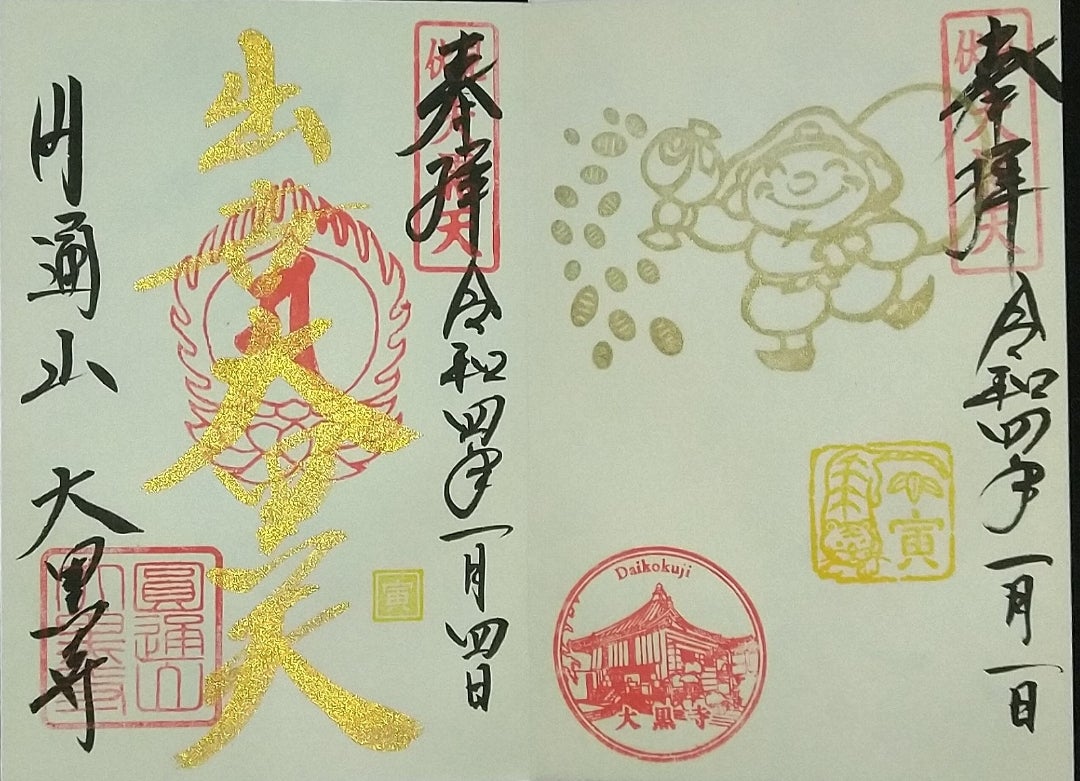 奉拝
伏見
大黒天
令和四年一月一日
寅
Daikokuji
大黒寺
奉拝
伏見
大黒天
令和四年一月四日
出世大黒天
寅
円通山 大黒寺
圓通山
大黒寺